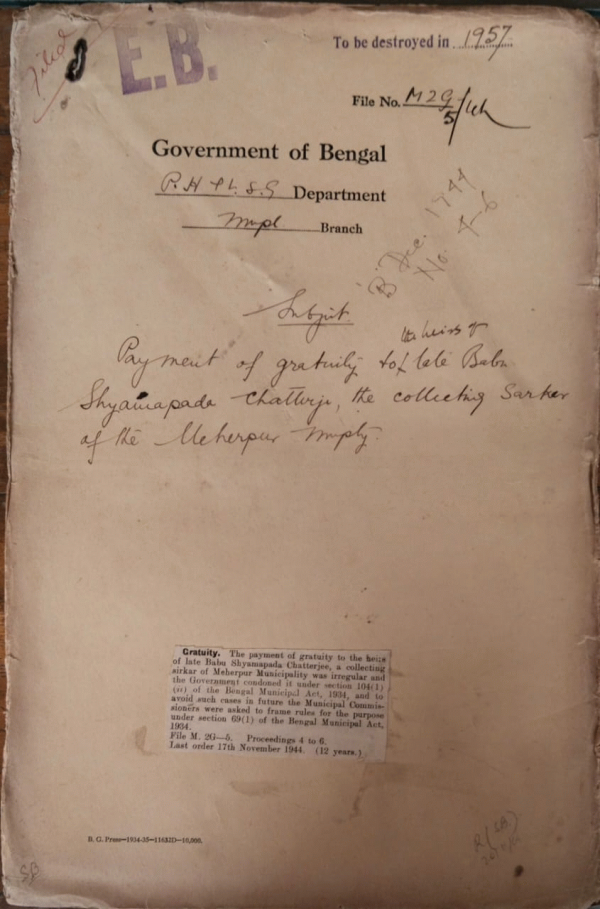 Filed
E.B.
To be destroyed in 1957
File No. M2G/5/44
Government of Bengal
P.H & L.S.G Department
Mupl Branch
"B" Dec. 1944
No. 4-6
Subject.
the heirs of
Payment of gratuity to late Babu
Shyamapada Chatterji, the collecting Sarker
of the Meherpur Muplty.
Gratuity. The payment of gratuity to the heirs
of late Babu Shyamapada Chatterjee, a collecting
sirkar of Meherpur Municipality was irregular and
the Government condoned it under section 104(1)
of the Bengal Municipal Act, 1934, and to
avoid such cases in future the Municipal Commis-
sioners were asked to frame rules for the purpose
under section 69(1) of the Bengal Municipal Act,
1934.
File M. 2G—5. Proceedings 4 to 6.
Last order 17th November 1944. (12 years.)
B. G. Press—1934-35—
SB